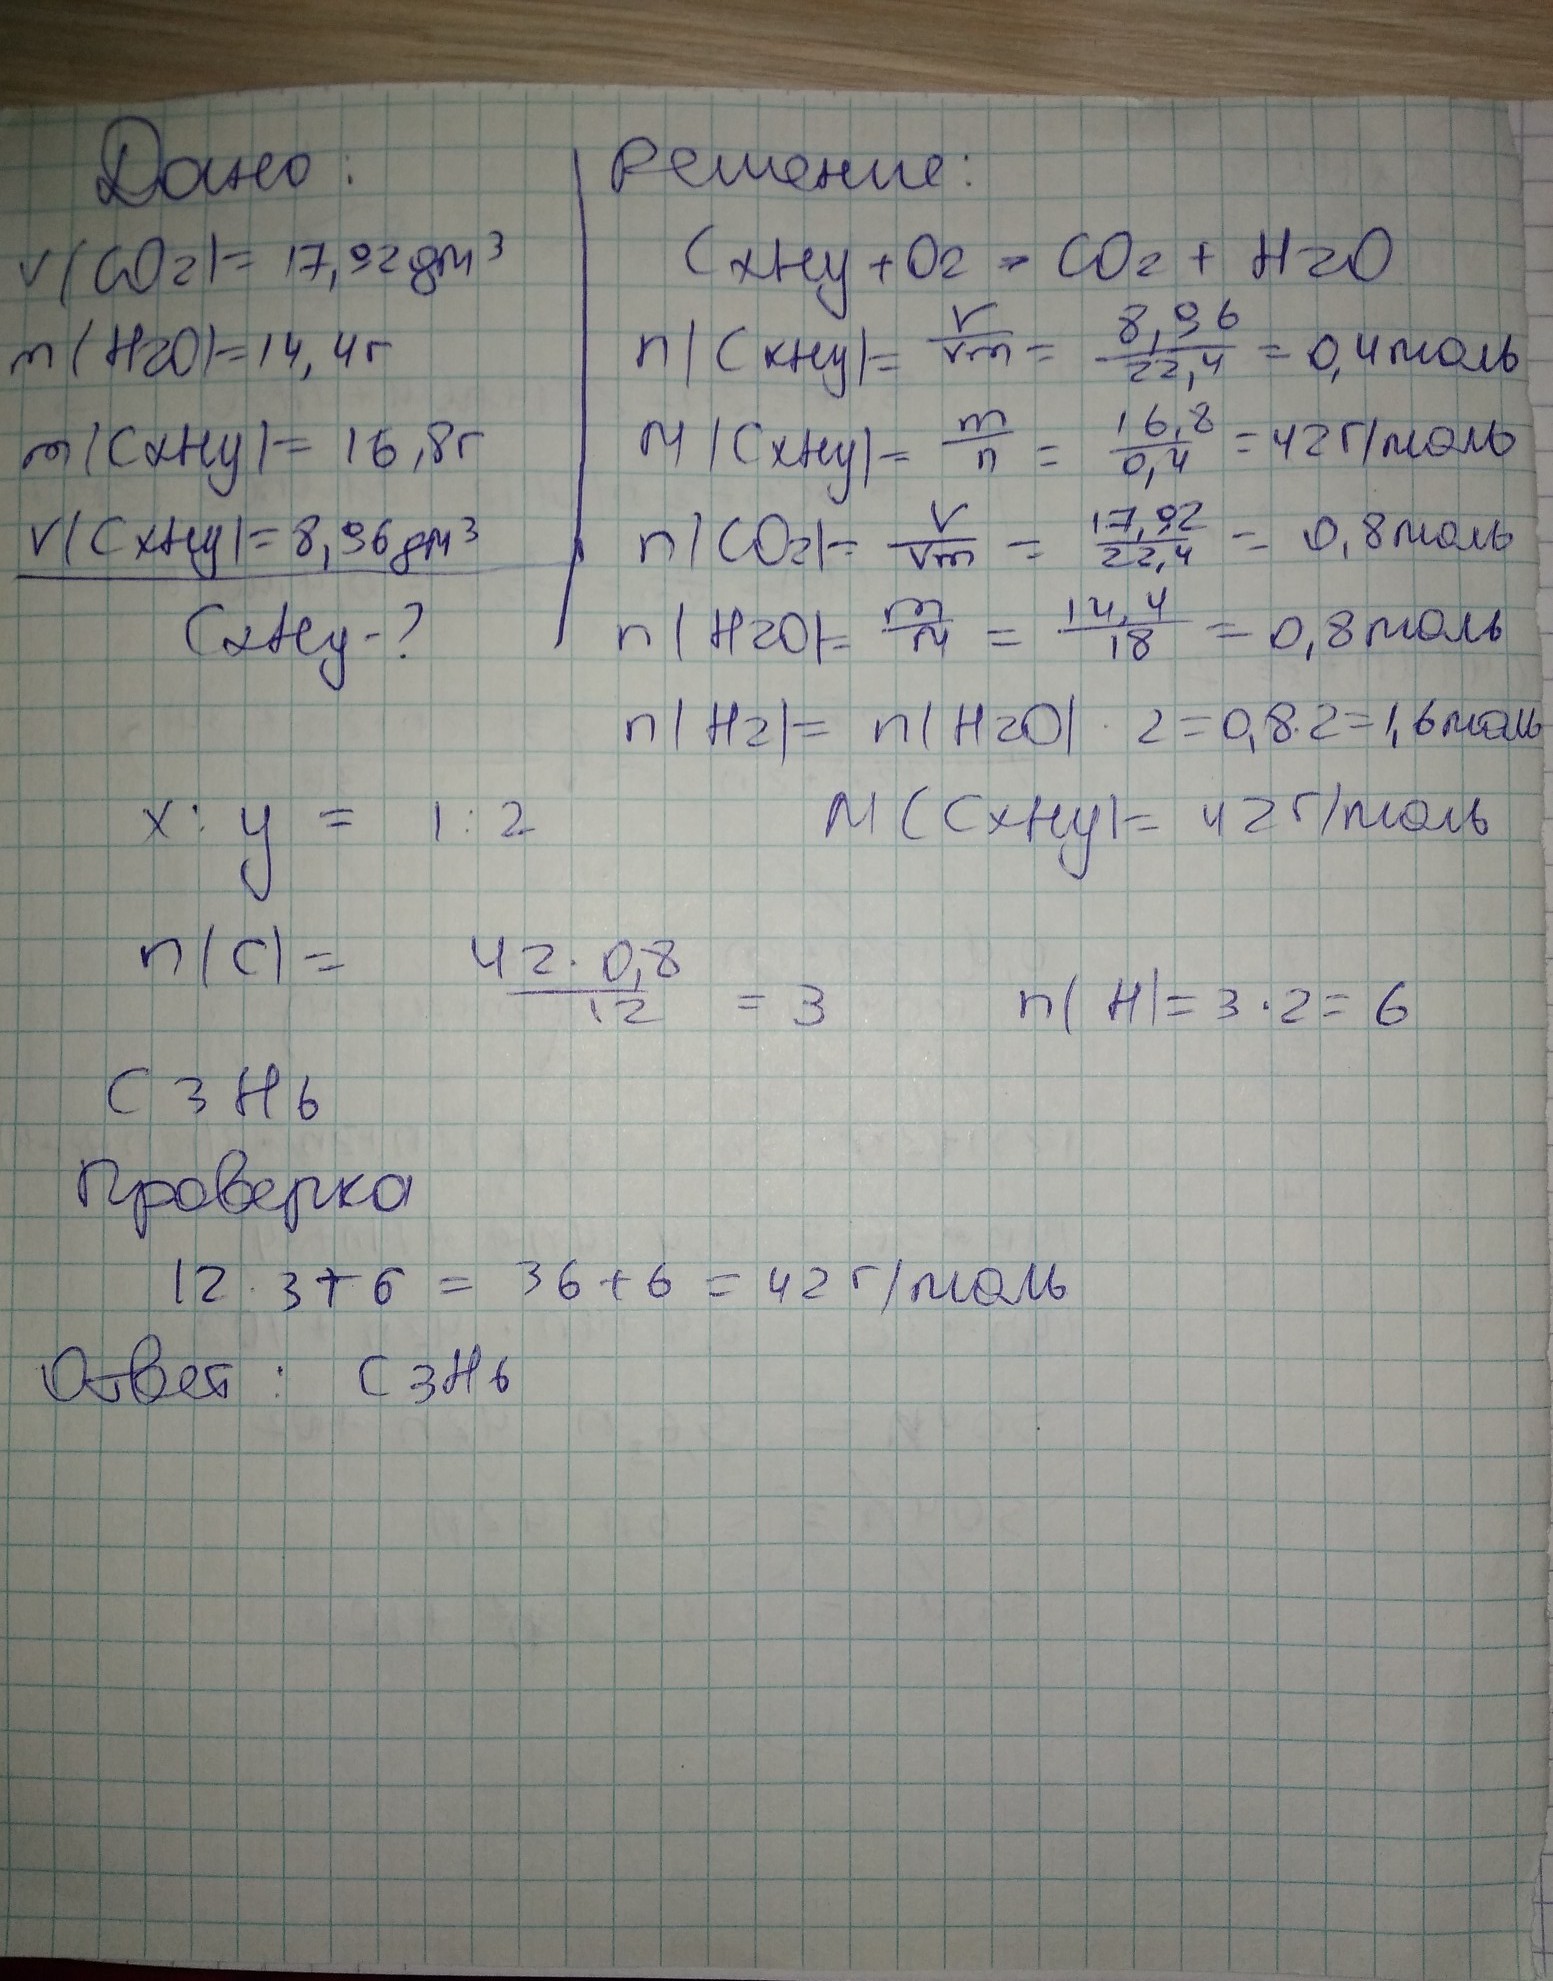 Дано:
V(CO2)=17,92дм³
m(H2O)=14,4г
m(CxHy)=16,8г
V(CxHy)=8,96дм³
CxHy-?
Решение:
CxHy+O2 → CO2 + H2O
n(CxHy)= V/Vm = 8,96/22,4 = 0,4моль
M(CxHy)= m/n = 16,8/0,4 = 42г/моль
n(CO2)= V/Vm = 17,92/22,4 = 0,8моль
n(H2O)= m/M = 14,4/18 = 0,8моль
n(H2)= n(H2O) · 2=0,8·2=1,6моль
x:y = 1:2 M(CxHy)= 42г/моль
n(C)= 42·0,8/12 = 3 n(H)=3·2=6
C3H6
Проверка
12·3+6 = 36+6 = 42г/моль
Ответ: C3H6